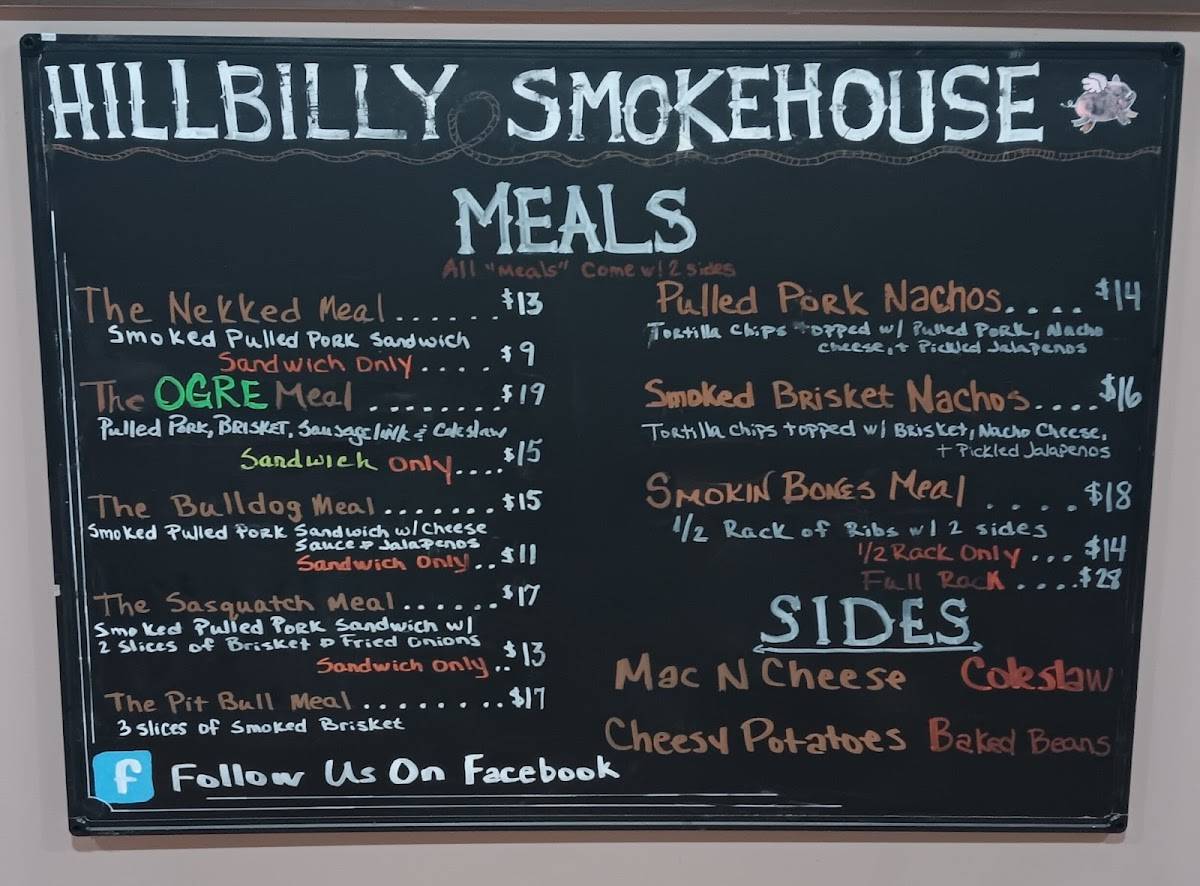 HILLBILLY SMOKEHOUSE
MEALS
All "Meals" Come w/ 2 sides
The Nekked Meal.......$13
Smoked Pulled Pork Sandwich
Sandwich Only.....$9
The OGRE Meal ........$19
Pulled Pork, Brisket, Sausage link & Coleslaw
Sandwich Only....$15
The Bulldog Meal.......$15
Smoked Pulled Pork Sandwich w/ Cheese
Sauce & Jalapenos
Sandwich Only..$11
The Sasquatch Meal......$17
Smoked Pulled Pork Sandwich w/
2 slices of Brisket & Fried Onions
Sandwich Only..$13
The Pit Bull Meal........$17
3 slices of Smoked Brisket
Pulled Pork Nachos....$14
Tortilla Chips topped w/ Pulled Pork, Nacho
Cheese, + Pickled Jalapenos
Smoked Brisket Nachos....$16
Tortilla Chips topped w/ Brisket, Nacho Cheese,
+ Pickled Jalapenos
Smokin Bones Meal .....$18
1/2 Rack of Ribs w/ 2 sides
1/2 Rack Only ...$14
Full Rack ....$28
SIDES
Mac N Cheese Coleslaw
Cheesy Potatoes Baked Beans
f Follow Us On Facebook